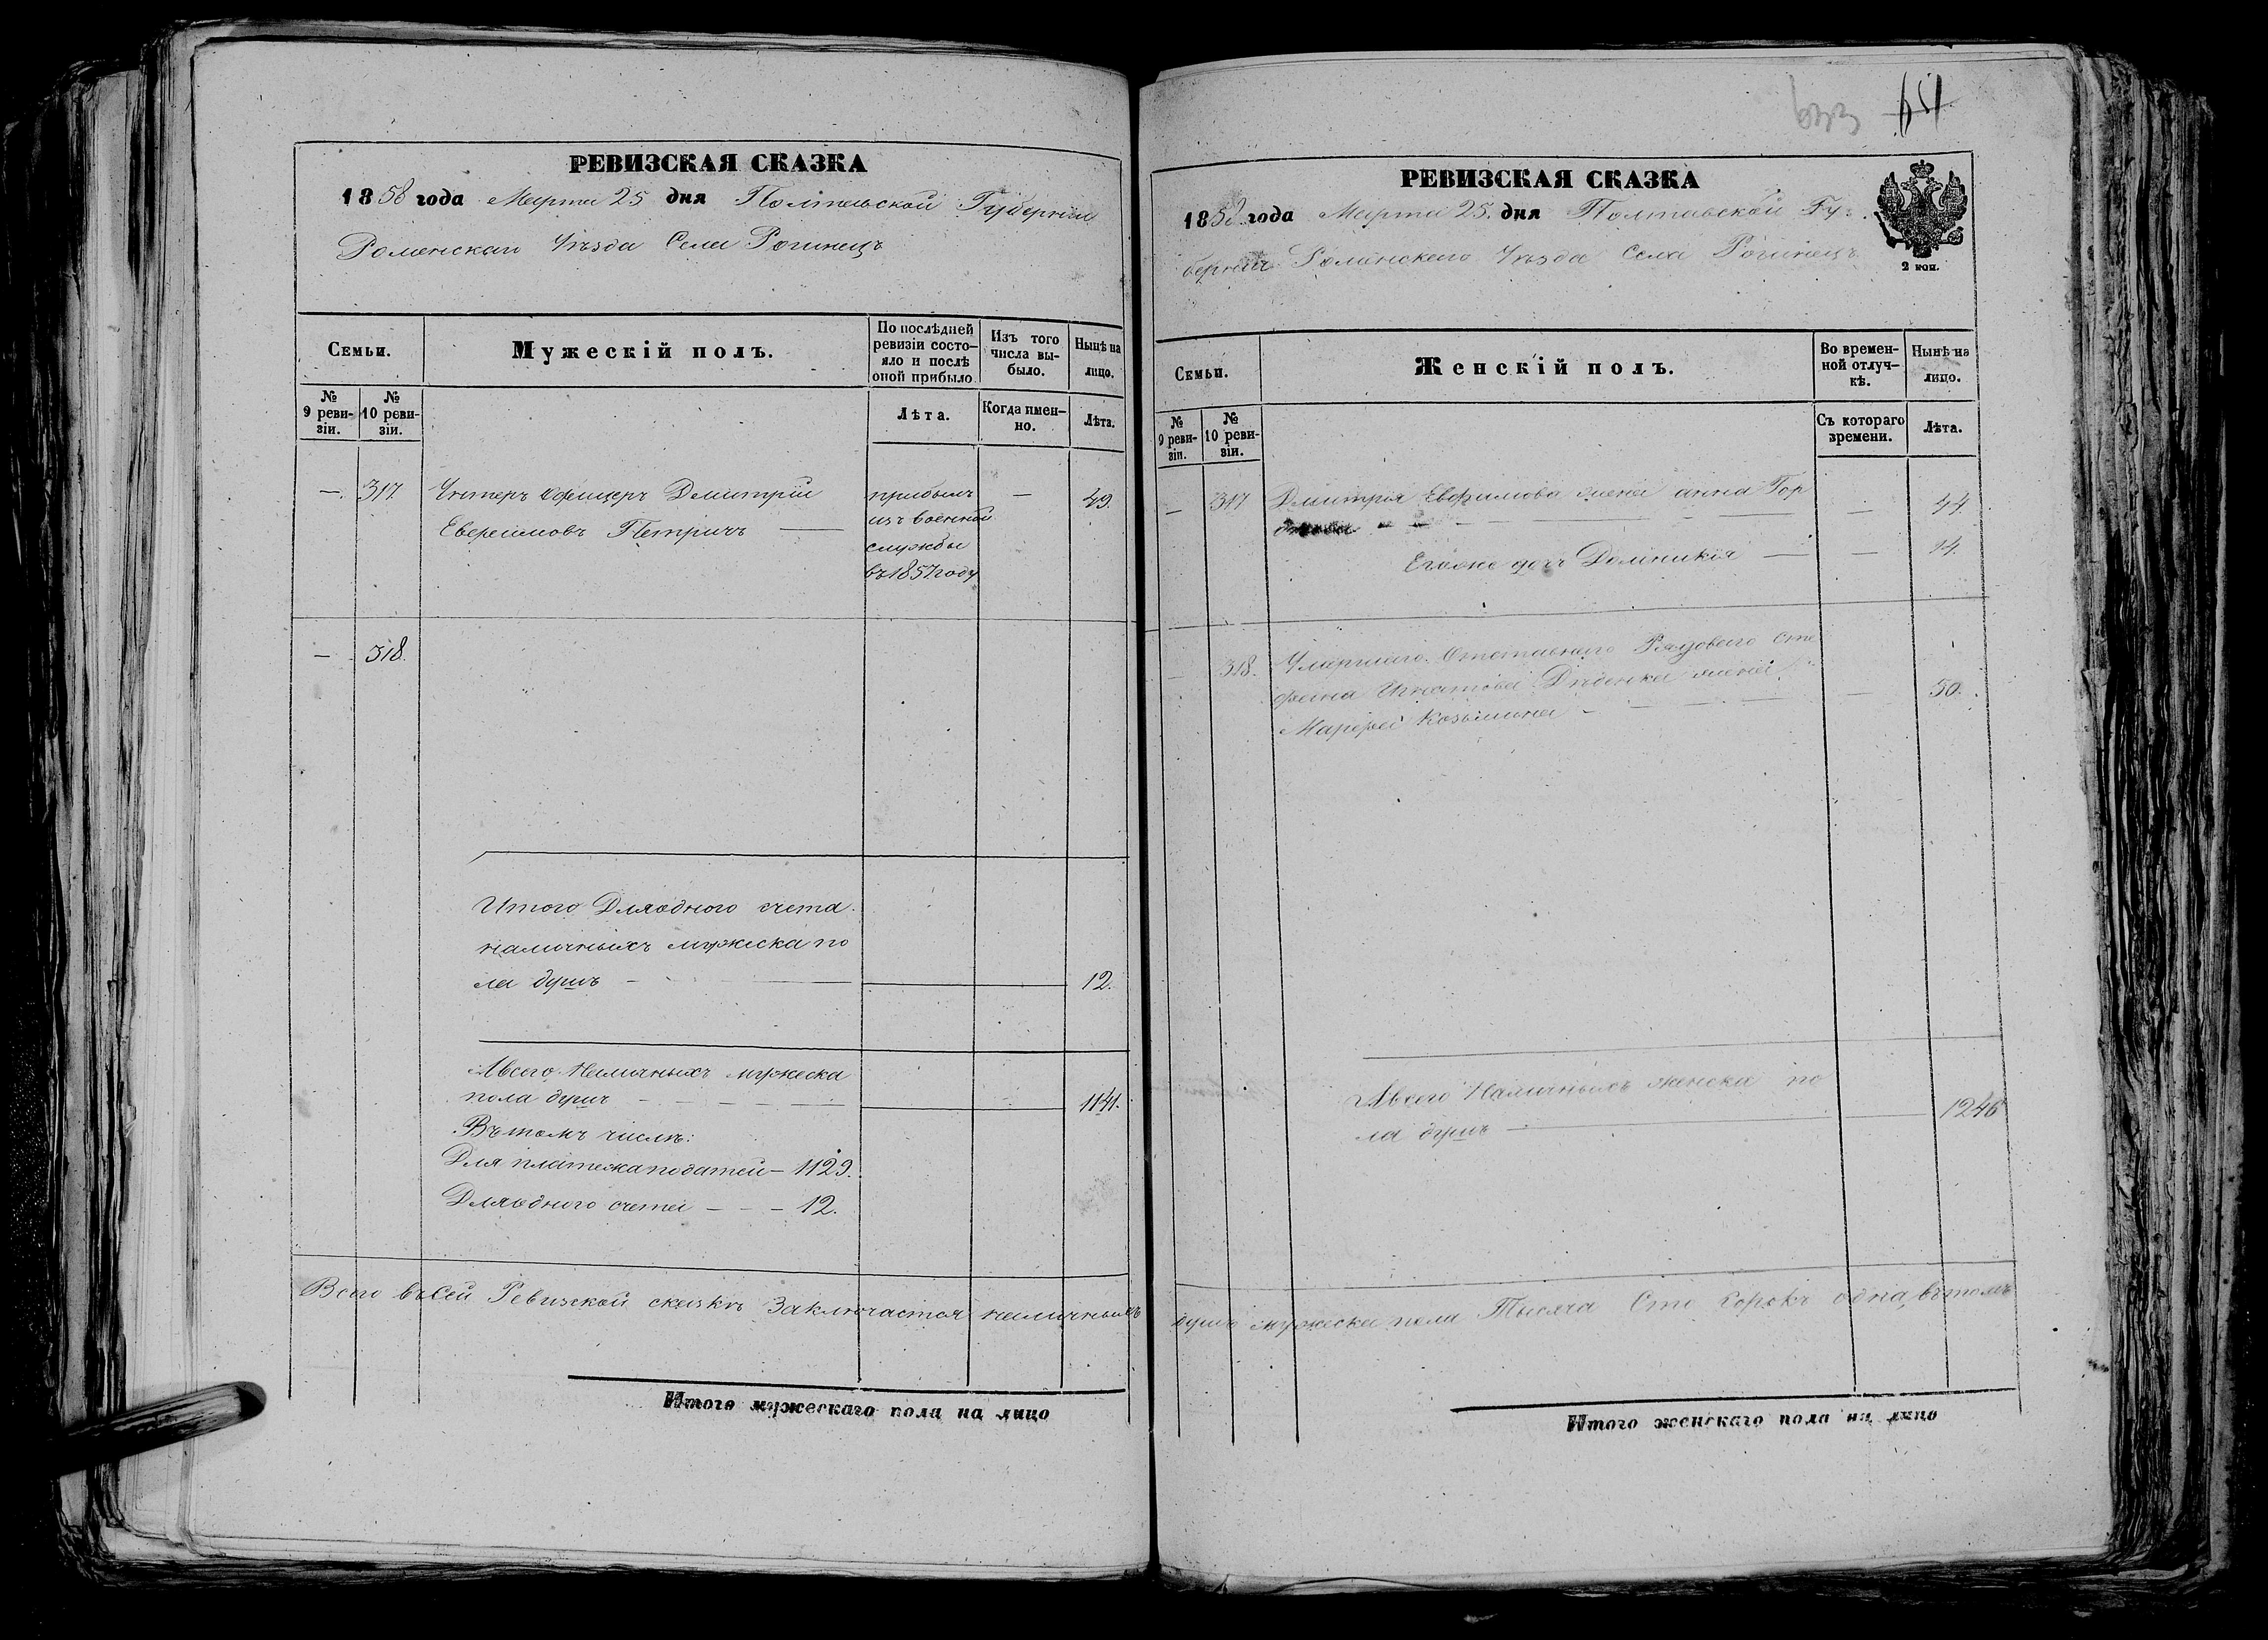 РЕВИЗСКАЯ СКАЗКА
1858 года Марта 25 дня Полтавской Губерніи
Роменскаго Уѣзда Села Рогинецъ
Семьи.
Мужескій полъ.
По послѣдней ревизіи состояло и послѣ оной прибыло.
Изъ того числа выбыло.
Нынѣ на лицо.
№ 9 ревизіи.
№ 10 ревизіи.
Лѣта.
Когда именно.
Лѣта.
—. 317. Унтеръ Офицеръ Дмитрій прибылъ — 49.
Евфимовъ Петричъ — изъ военной
службы
въ 1857 году
— 318.
Итого Для одного счета
наличныхъ мужеска по
ла душъ — 12.
А всего Наличныхъ мужеска
пола душъ — 1141.
Въ томъ числѣ:
Для платежа податей — 1129.
Для одного счета — — — 12.
Всего въ сей Ревизской сказкѣ Заключается наличныхъ
Итого мужескаго пола на лицо
633 651
РЕВИЗСКАЯ СКАЗКА
1858 года Марта 25. дня Полтавской Гу-
берніи Роменскаго Уѣзда Села Рогинецъ
2 коп.
Семьи.
Женскій полъ.
Во временной отлучкѣ.
Нынѣ на лицо.
№ 9 ревизіи.
№ 10 ревизіи.
Съ котораго времени.
Лѣта.
— 317 Дмитрія Евфимова жена анна Гор — 44.
Егоже дочь Домникія — — 14.
— 318. Умершаго Отставнаго Рядоваго Сте
фана Игнатова Дяденка жена — 50.
Марфа Козьмина —
А всего Наличныхъ женска по
ла душъ — 1246
душъ мужеска пола Тысяча Сто Сорокъ одна, въ томъ
Итого женскаго пола на лицо